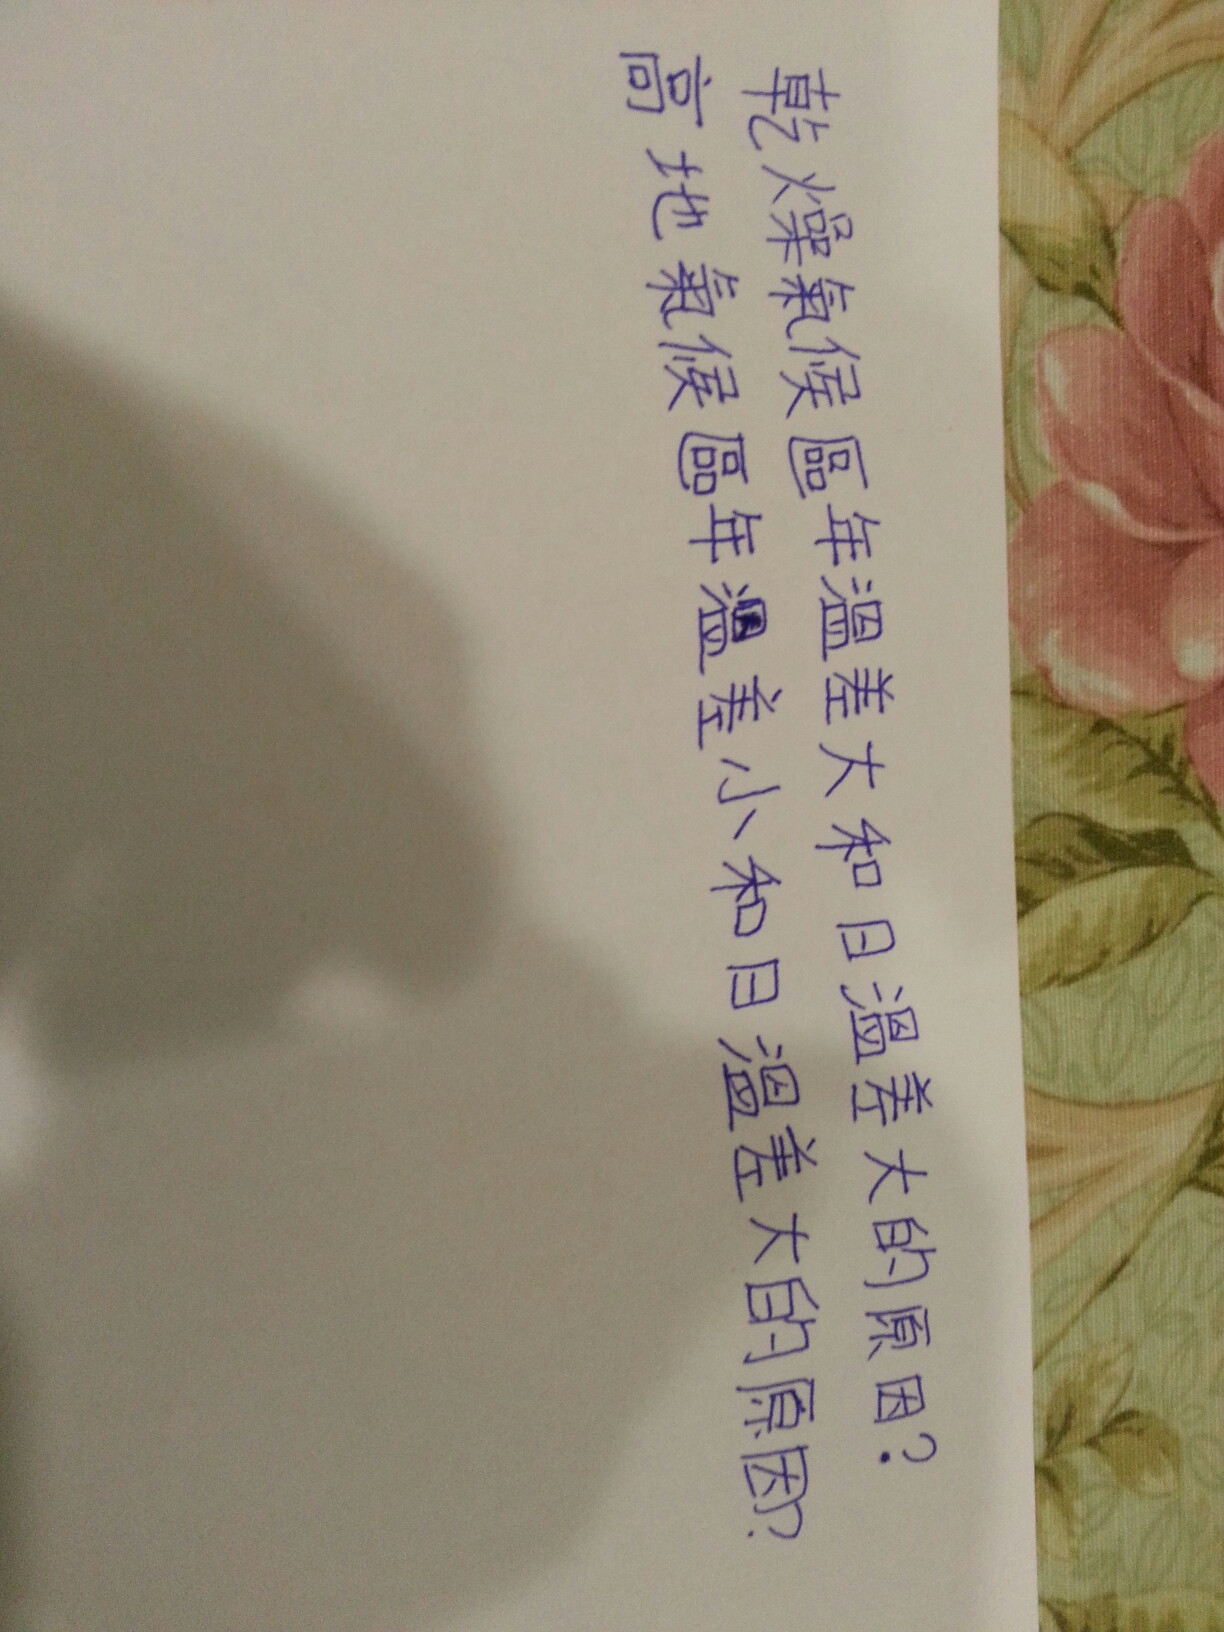 乾燥氣侯區年溫差大和日溫差大的原因?
高地氣侯區年溫差小和日溫差大的原因?